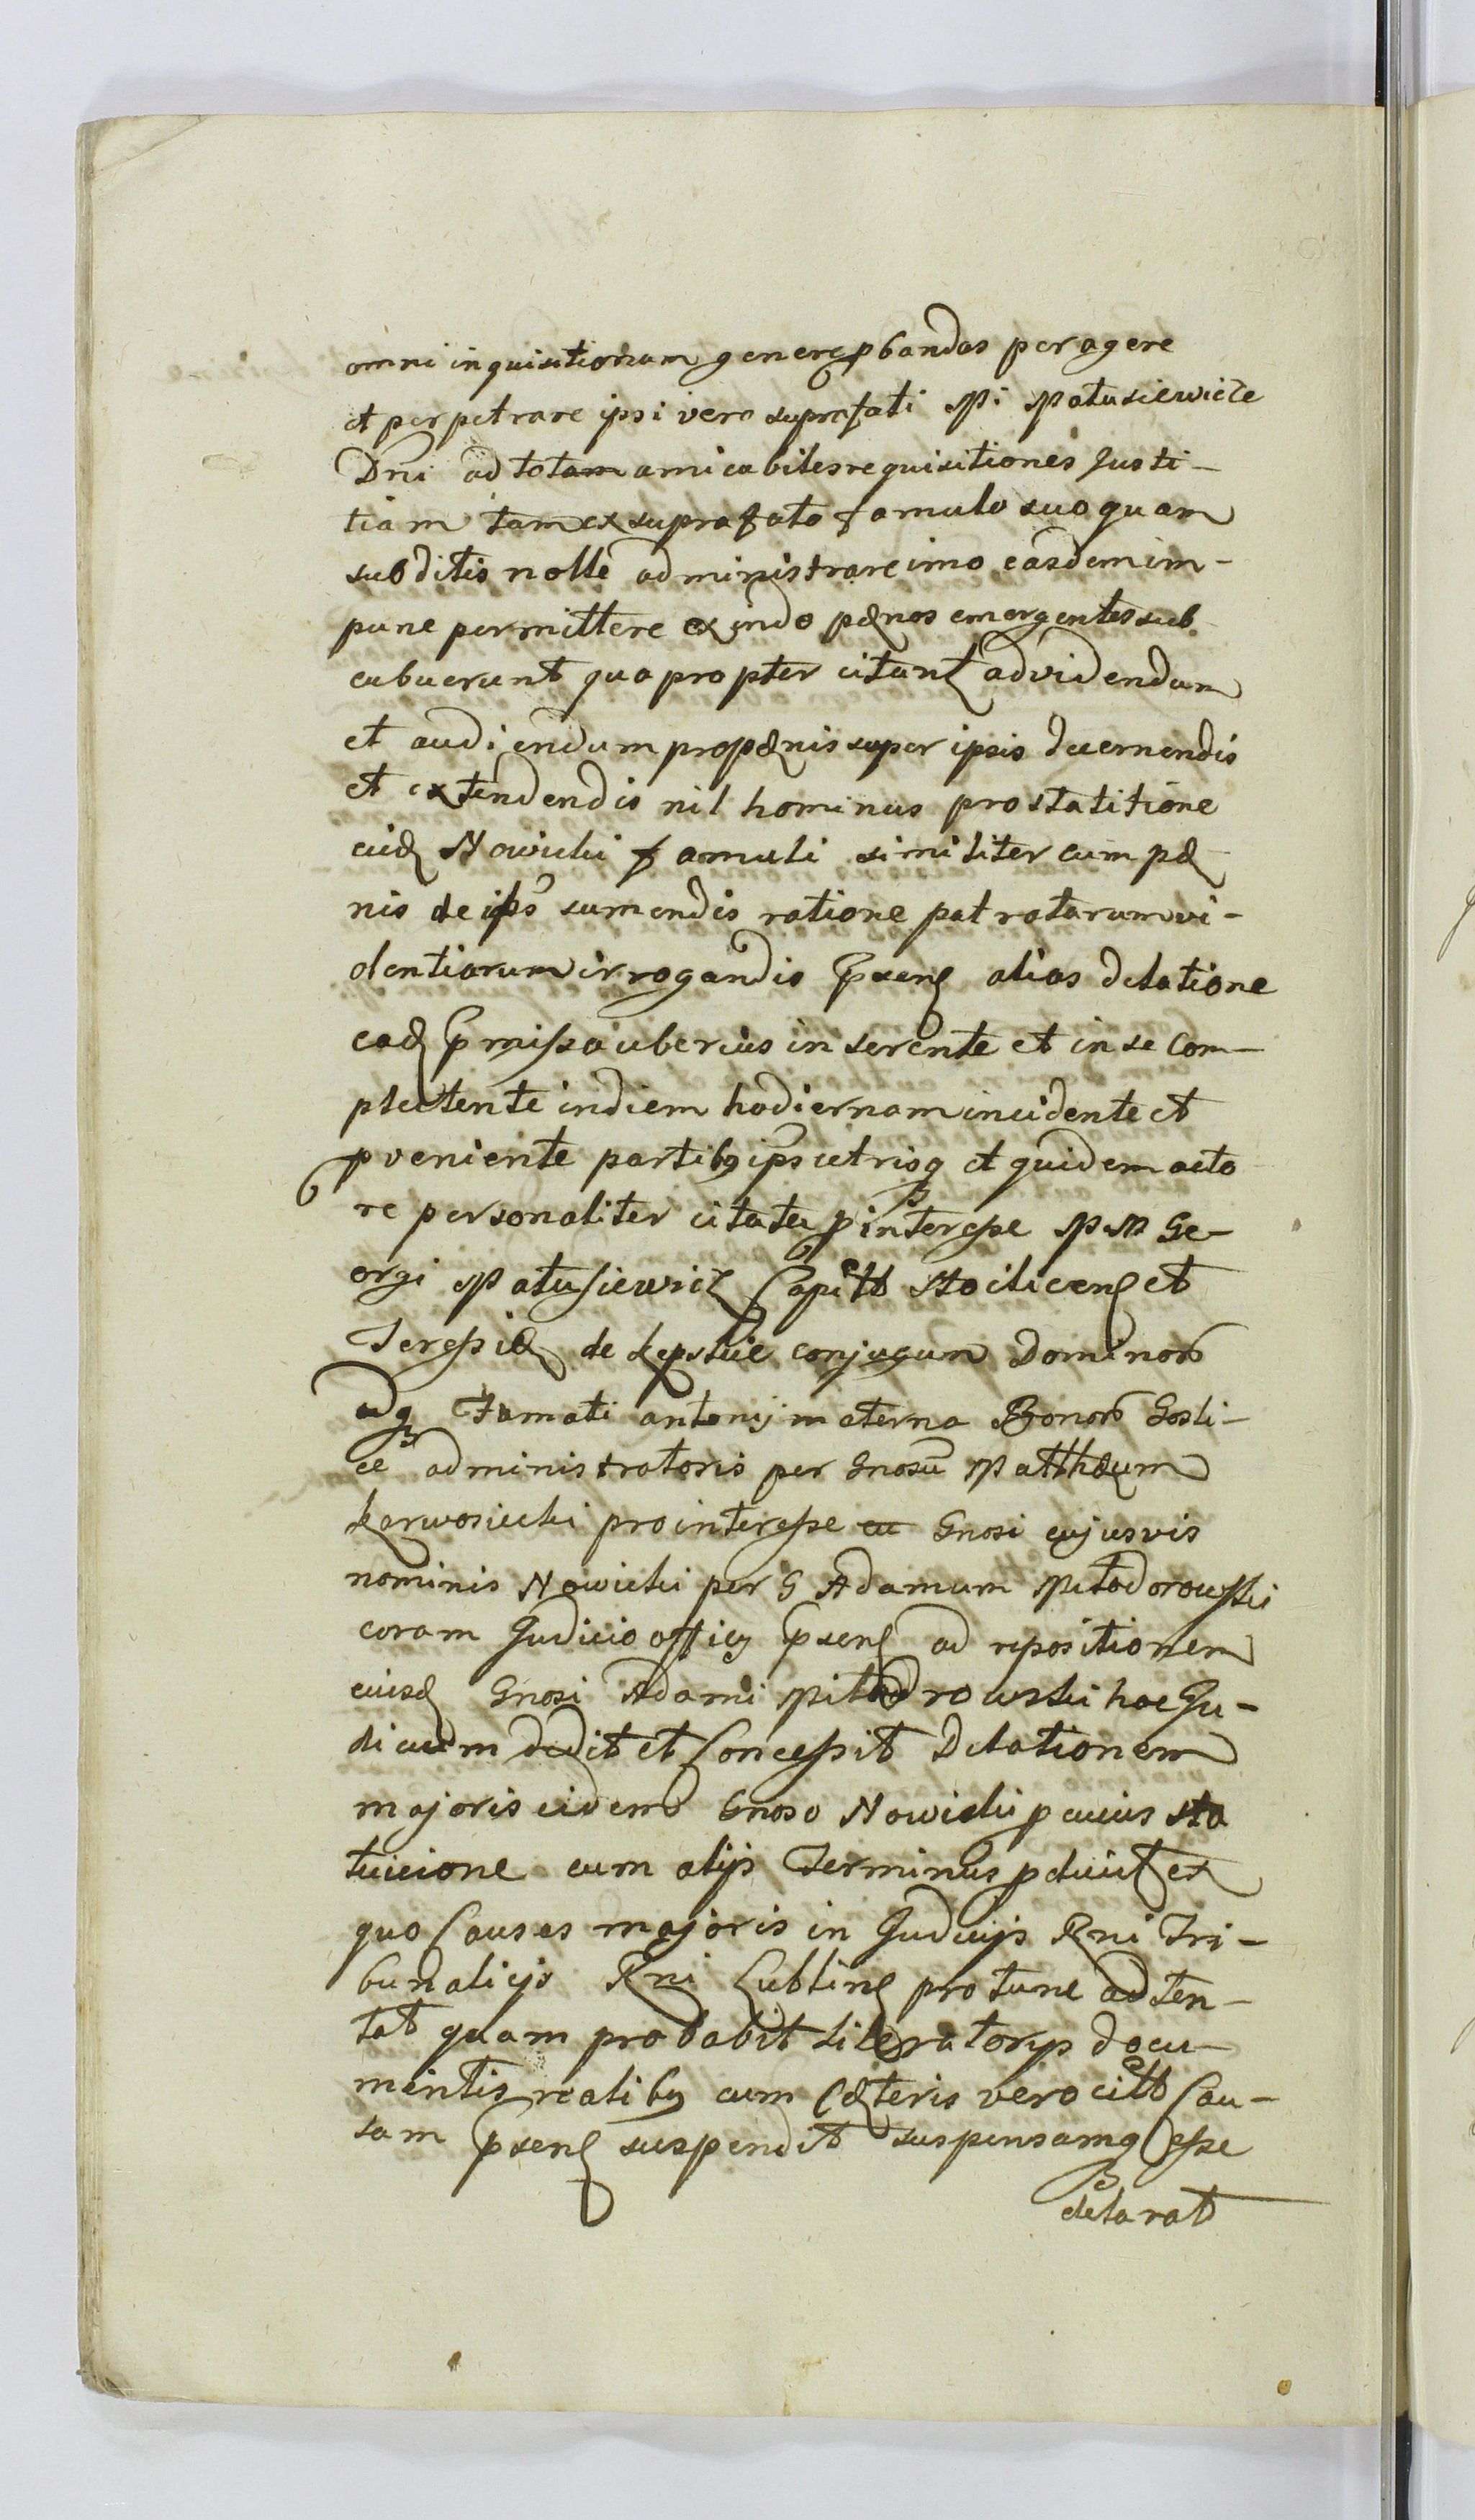 omni inquisitionum genere pbandas peragere
et perpetrare ipsi vero suprafati MMi Matusiewicze
Dni ad totam amicabiles requisitiones Justi-
tiam tam ex suprafato famulo suo quam
subditis nolle administrare imo easdem im-
pune permittere ex inde pænas emergentes sub
cubuerunt qua propter citant ad videndum
et audiendum pro pænis super ipsis decernendis
et extendendis nil hominus pro statitione
eius Nowicki famuli similiter cum pæ
nis de ipso sumendis ratione patratarum vi-
olentiarum irrogandis psens alias delatione
ead pmissa uberius inserente et in se Com-
plectente in diem hodiernam incidente et
pveniente partibq ips utrisq et quidem acto
re personaliter citata p interesse MM Ge-
orgi Matusiewicz Capitt Stoklicens et
Teressiæ de Kepskie conjugum Dominor
adq Famati antonij materna Bonor Gosli-
ce administratoris per Gnosu Matthæum
Karwosiecki pro interesse eu Gnosi cujusvis
nominis Nowicki per G Adamum Mlodorowski
coram Judicio officij psens ad repositionem
eiusd Gnosi Adami Mlodrowski hoc Ju-
dicium dedit et Concessit Delationem
majoris eidem Gnoso Nowicki p cuius sta
tuicione cum alijs Terminus pduit ex
quo Causas majoris in Judicijs Rni Tri-
bunalicijs Rni Lublins pro tunc adten-
tat quam probabit literatorijs docu-
mentis realibq cum Cæteris vero citt Cau-
sam psens suspendit suspensamq esse
delarat